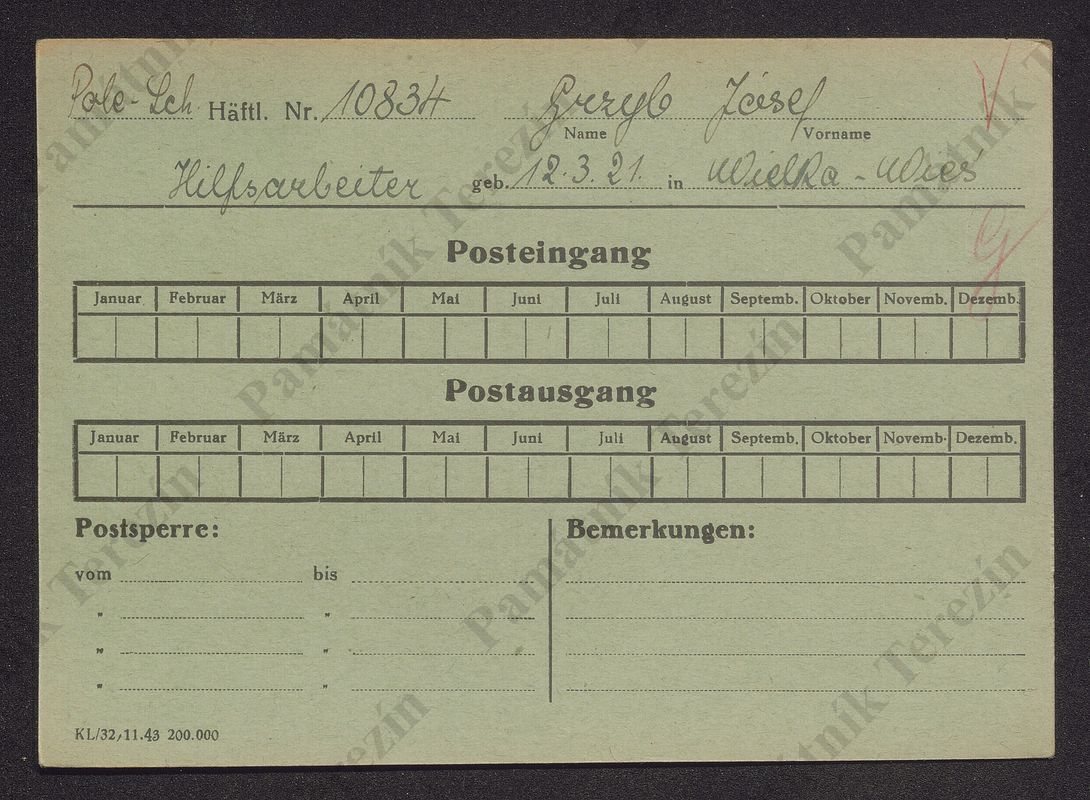 Pole-Sch. Häftl. Nr. 10834 Grzyb Józef
Name Vorname
Hilfsarbeiter geb. 12.3.21. in Wielka-Wieś
Posteingang
Januar Februar März April Mai Juni Juli August Septemb. Oktober Novemb. Dezemb.
Postausgang
Januar Februar März April Mai Juni Juli August Septemb. Oktober Novemb. Dezemb.
Postsperre: Bemerkungen:
vom bis
" "
" "
" "
KL/32/11.43 200.000
Památník Terezín